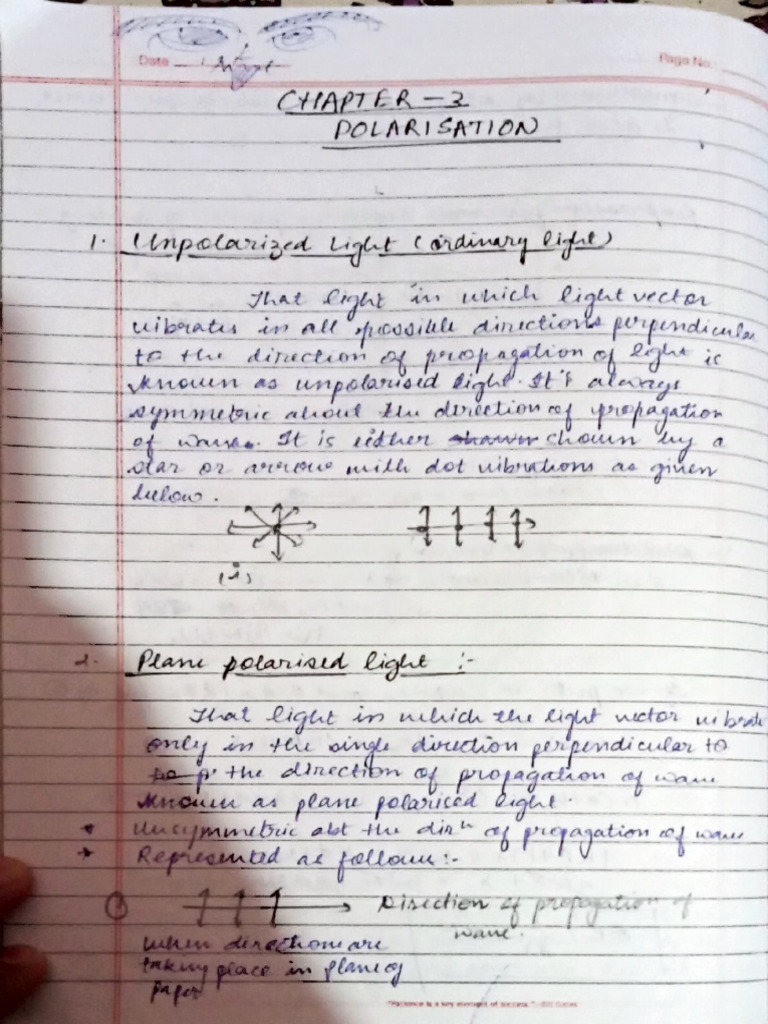 Date
Page No.
CHAPTER - 3
POLARISATION
1. Unpolarized light (ordinary light)
That light in which light vector
vibrates in all possible directions perpendicular
to the direction of propagation of light is
known as unpolarised light. It's always
symmetric about the direction of propagation
of wave. It is either shown by a
star or arrow with dot vibrations as given
below.
(i)
2. Plane polarised light :-
That light in which the light vector vibrate
only in the single direction perpendicular to
the direction of propagation of wave
known as plane polarised light.
* Unsymmetric abt the dirⁿ of propagation of wave
* Represented as follows:-
① Direction of propagation of
wave.
when directions are
taking place in plane of
paper
"Patience is a key element of success." - Bill Gates